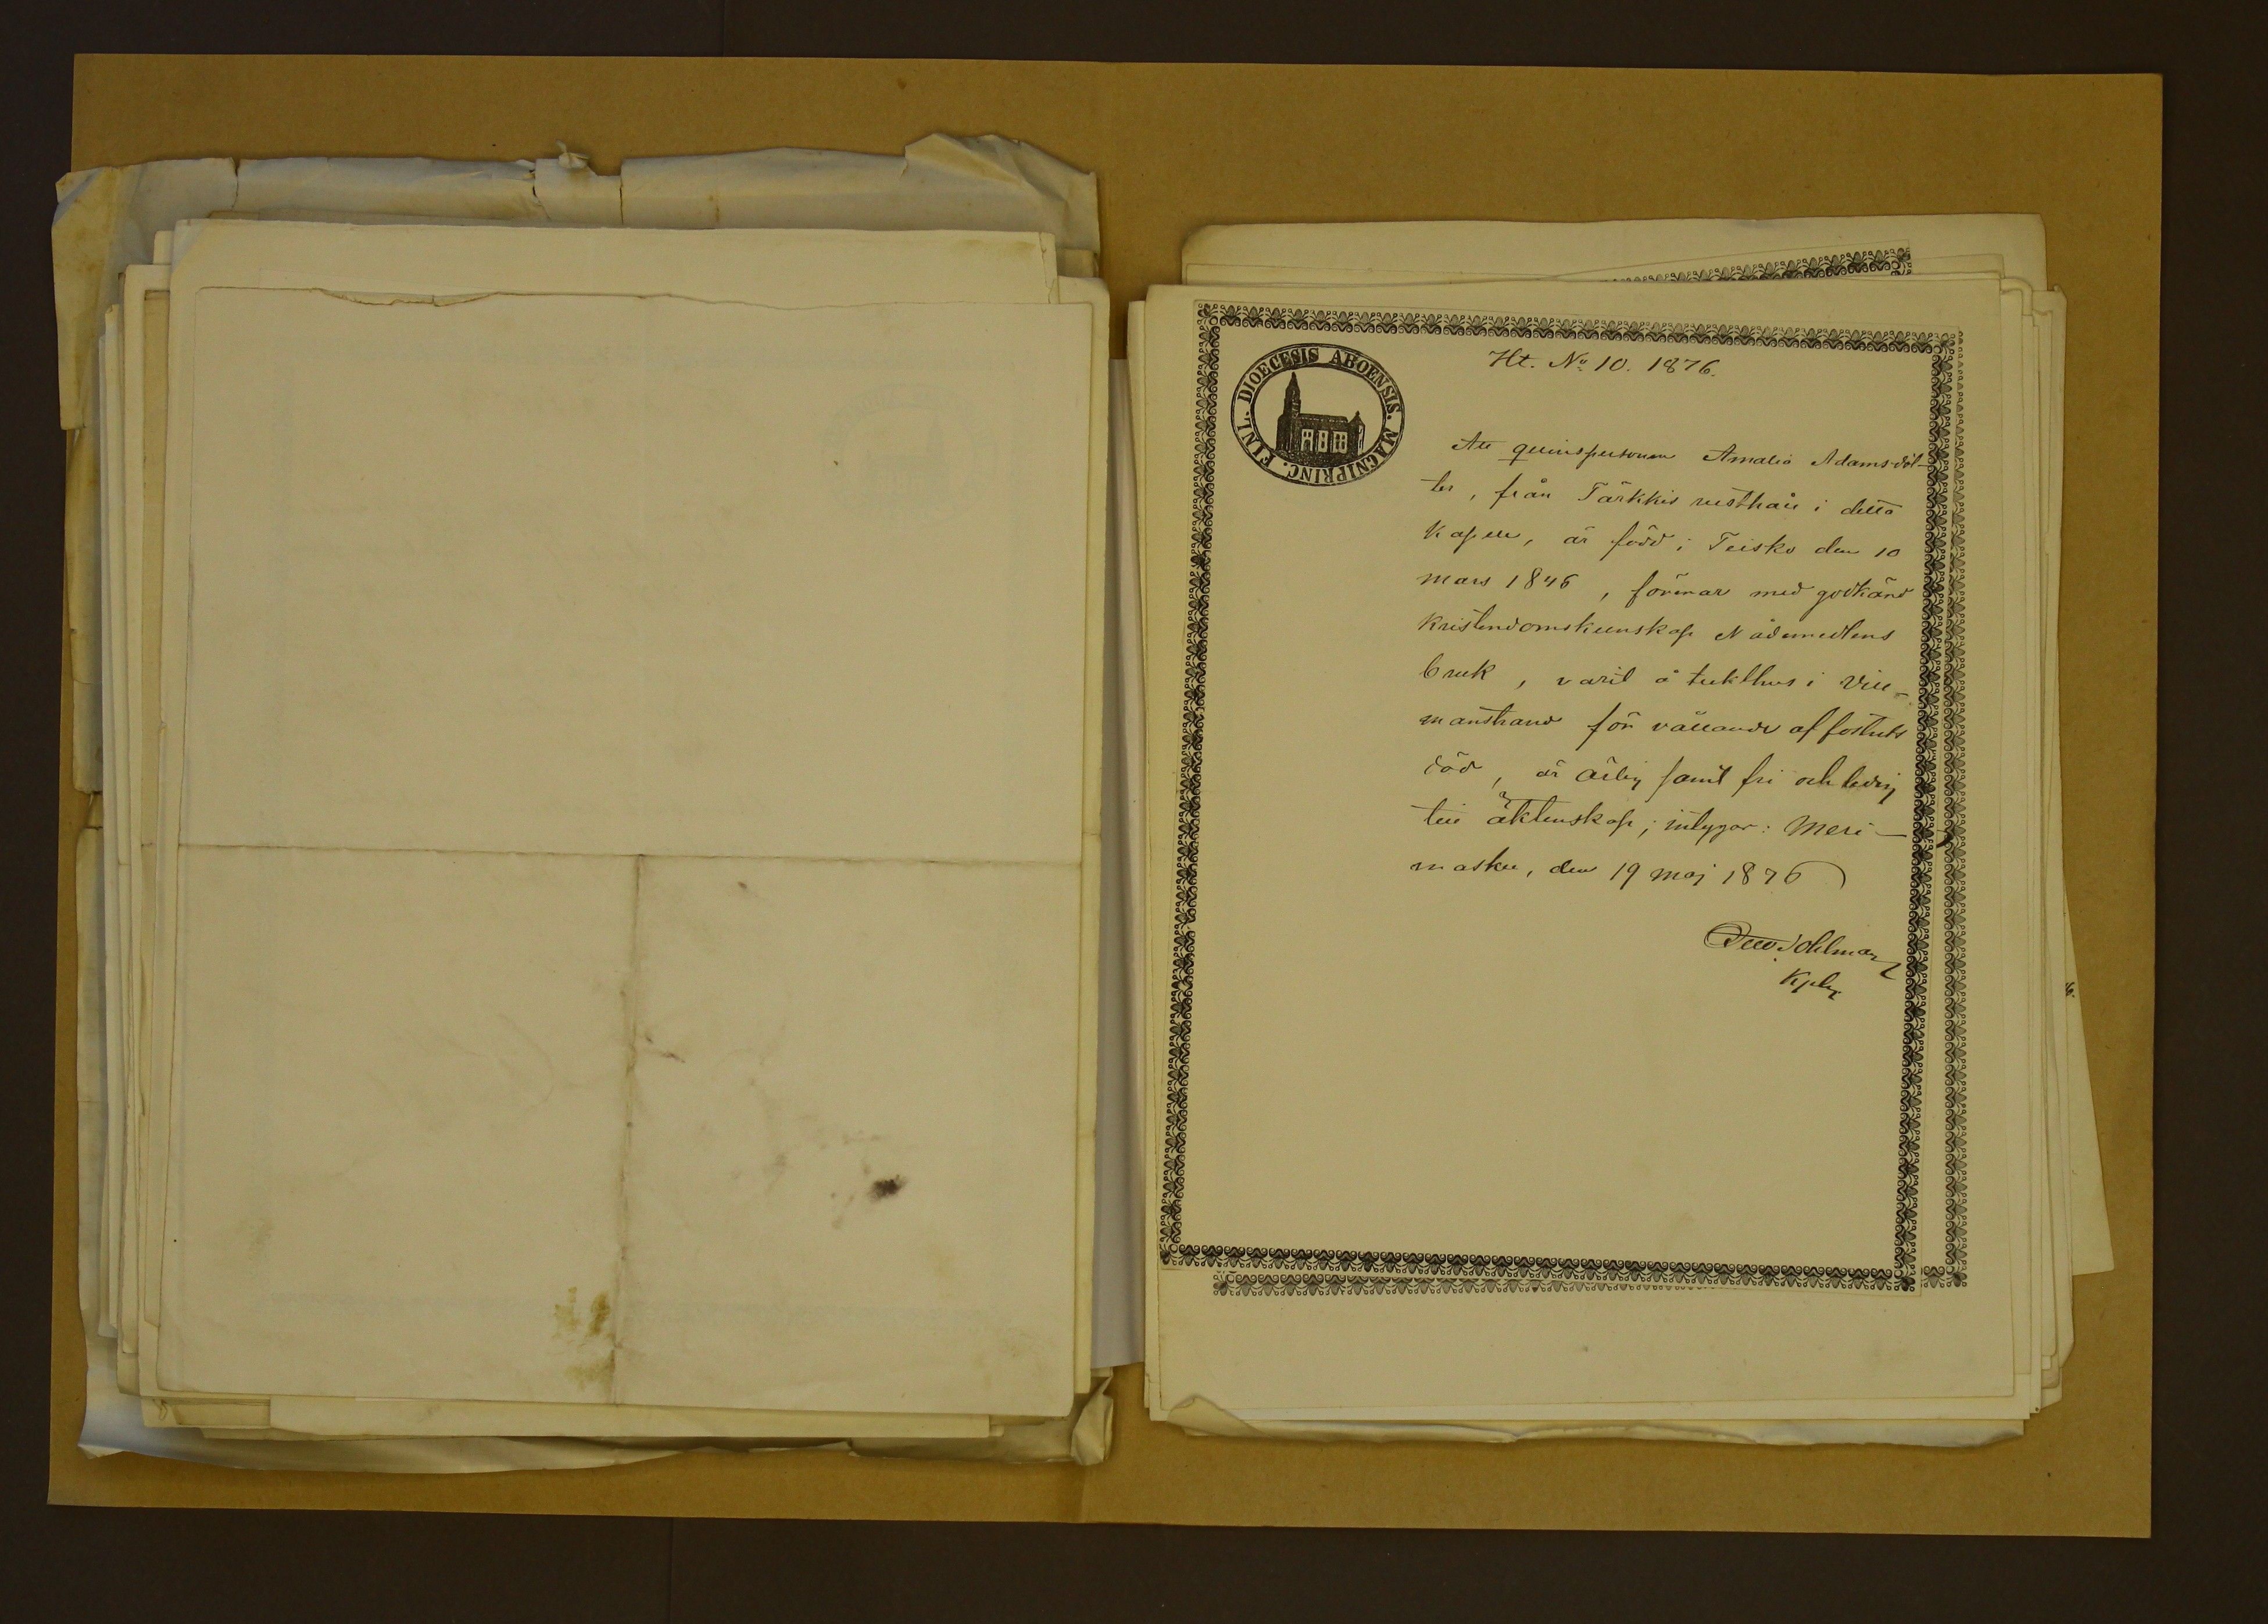 Ht. No 10. 1876.
FINL. DIOECESIS ABOENSIS. MAGNIPRINC.
Att qvinspersonen Amalia Adamsdot-
ter, från Tärkkis rusthåll i detta
Kapell, är född i Teisko den 10
mars 1846, förenar med godkänd
Kristendomskunskap Nådemedlens
bruk, varit å tukthus i Vill-
manstrand för vållande af fosters
död, är ärlig samt fri och ledig
till äktenskap; intygar: Meri-
masku, den 19 maj 1876
Otto Sohlman
Kpln